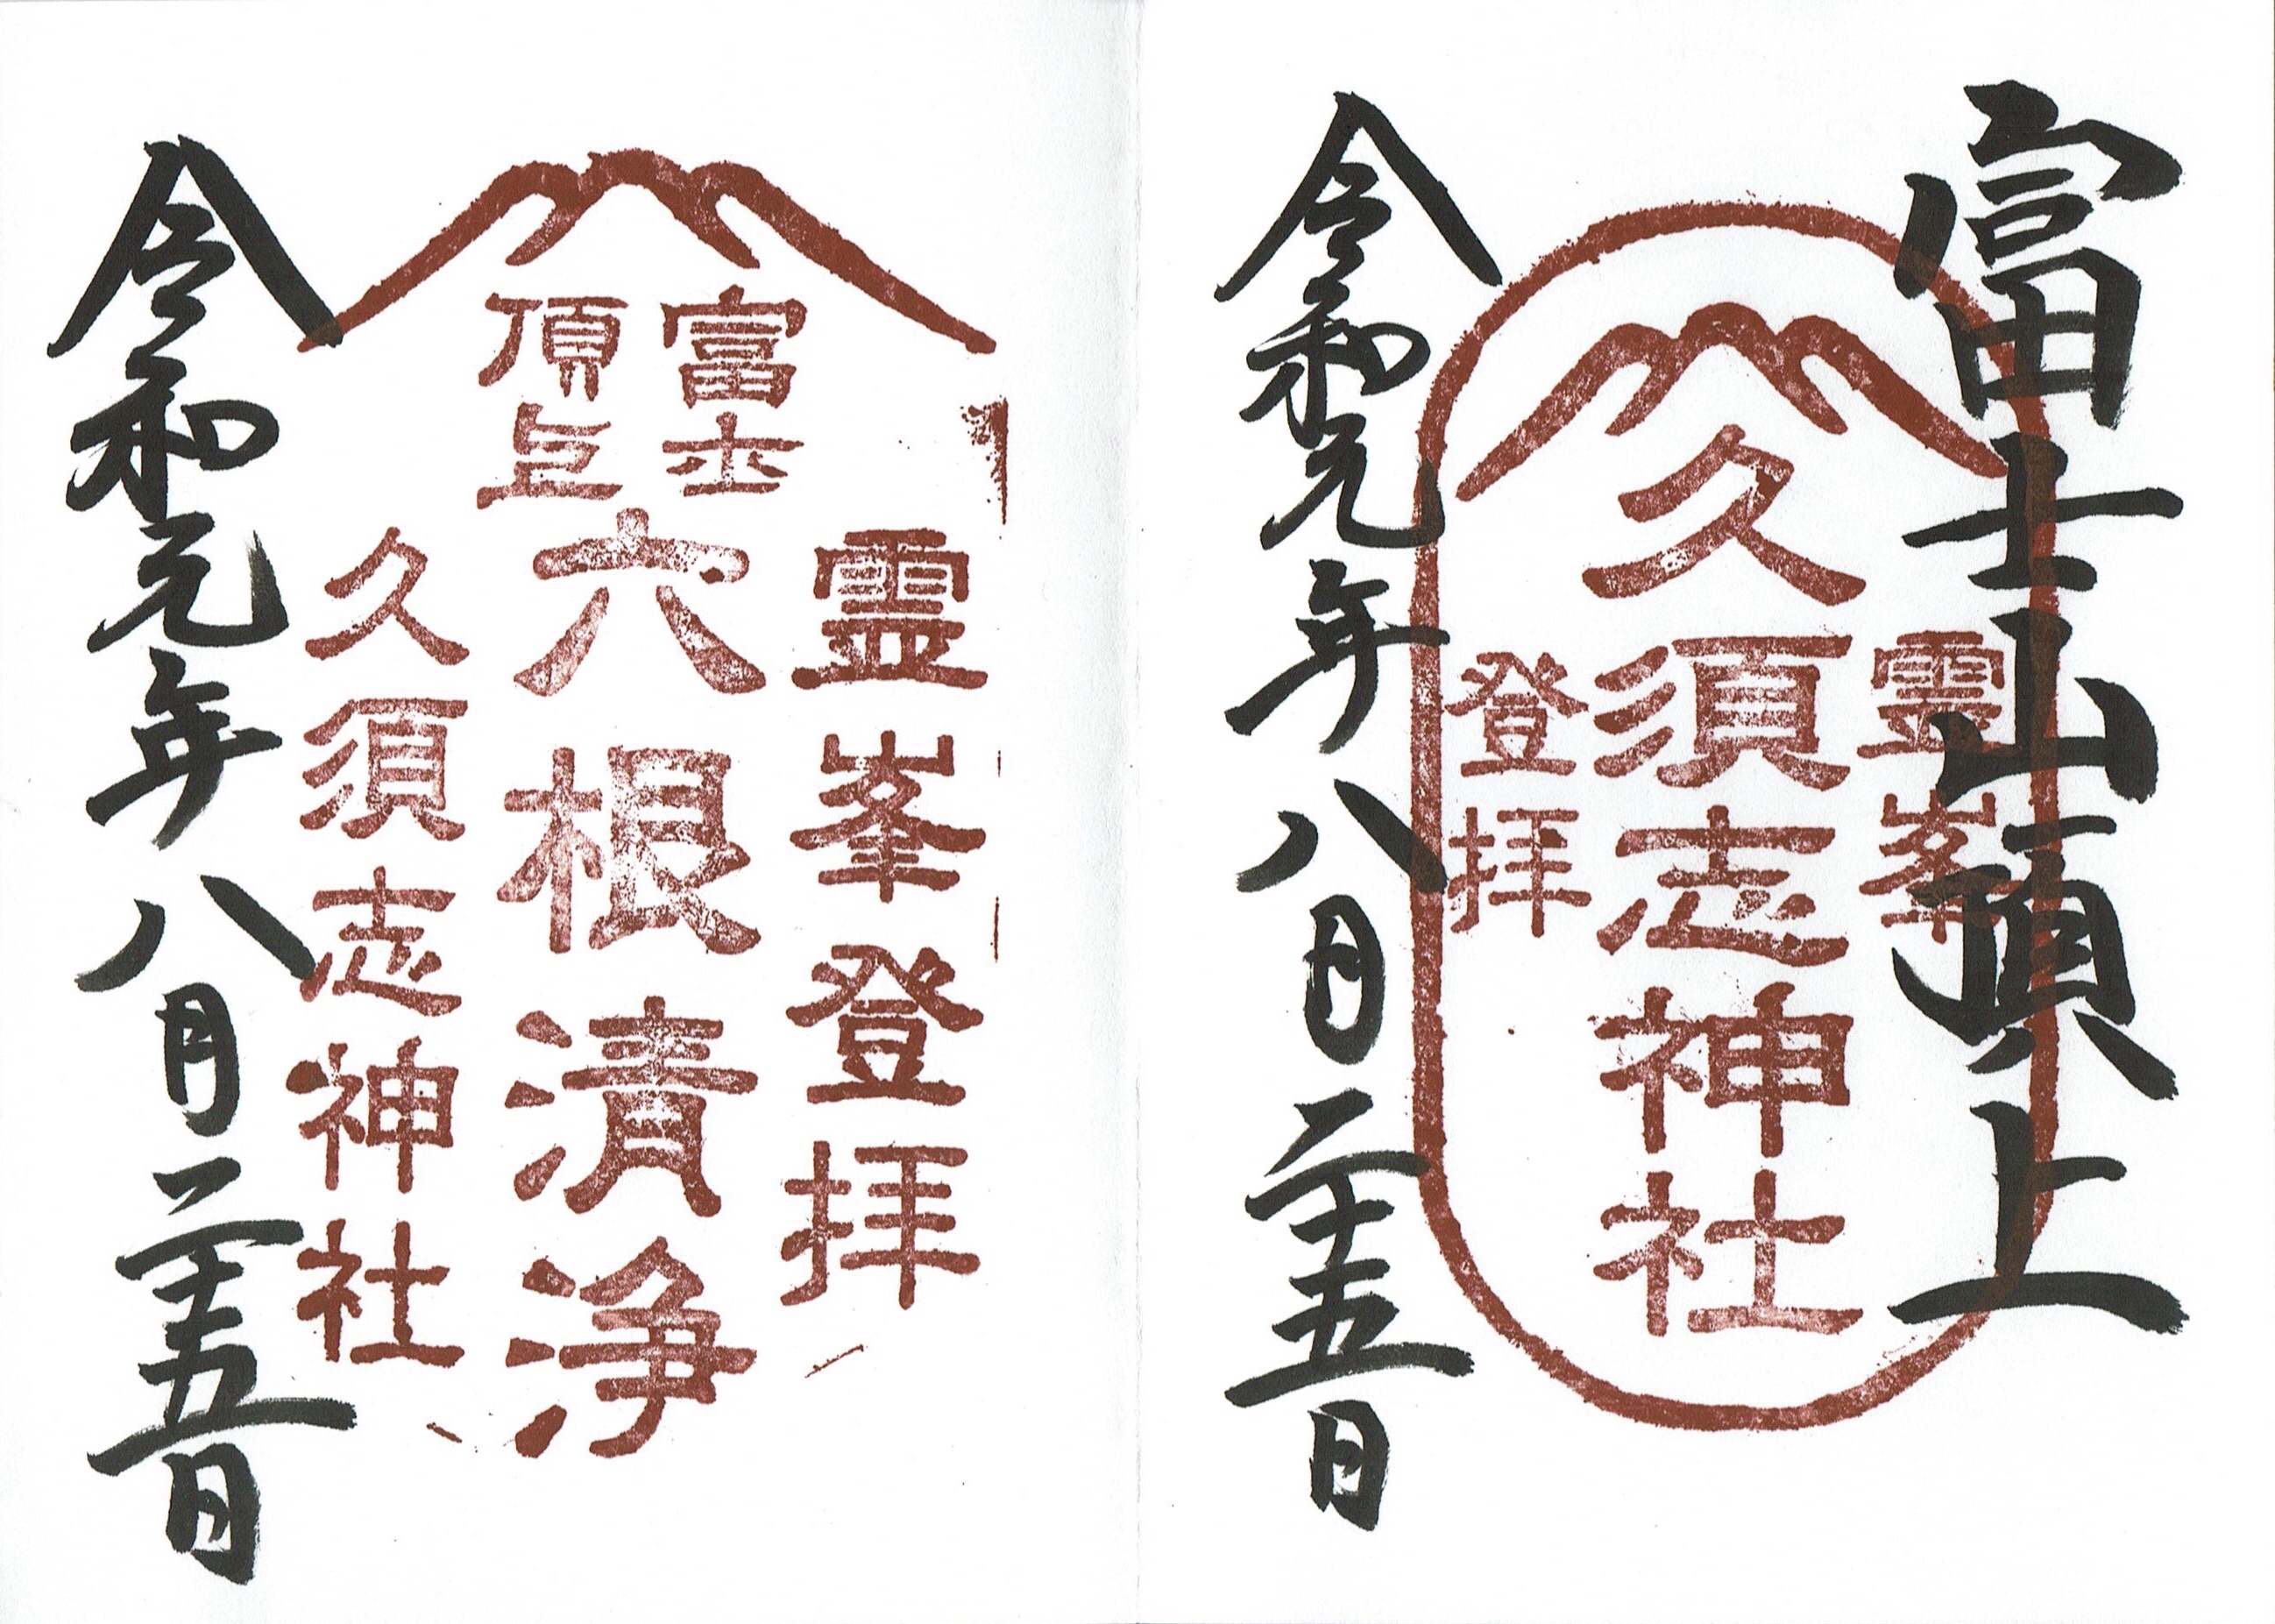 富士山頂上
霊峯
久須志神社
登拝
令和元年八月二十五日
霊峯登拝
富士
頂上
六根清浄
久須志神社
令和元年八月二十五日